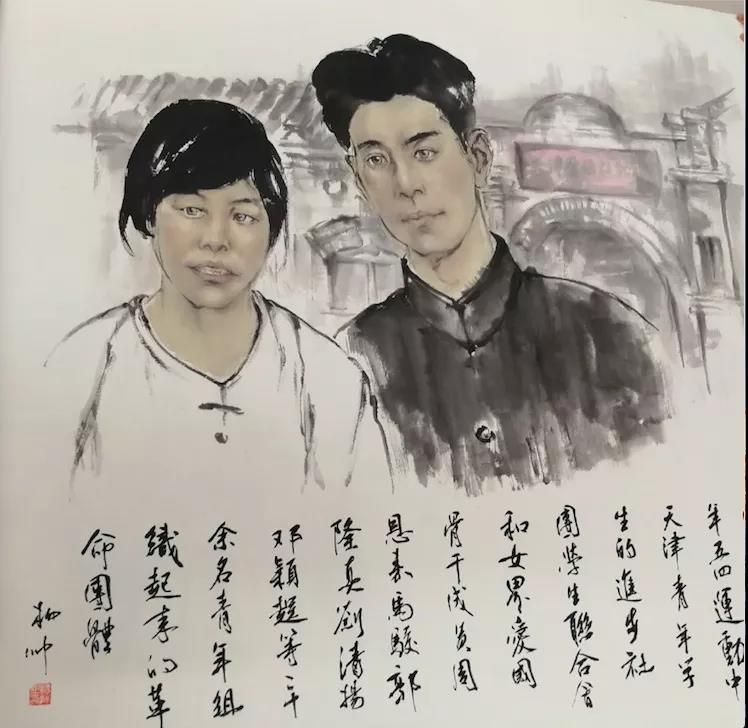 年五四運動中
天津青年学
生的進步社
團學生聯合會
和女界愛國
骨干成員周
恩来馬駿郭
隆真劉清揚
邓穎超等二十
余名青年组
織起来的革
命團體